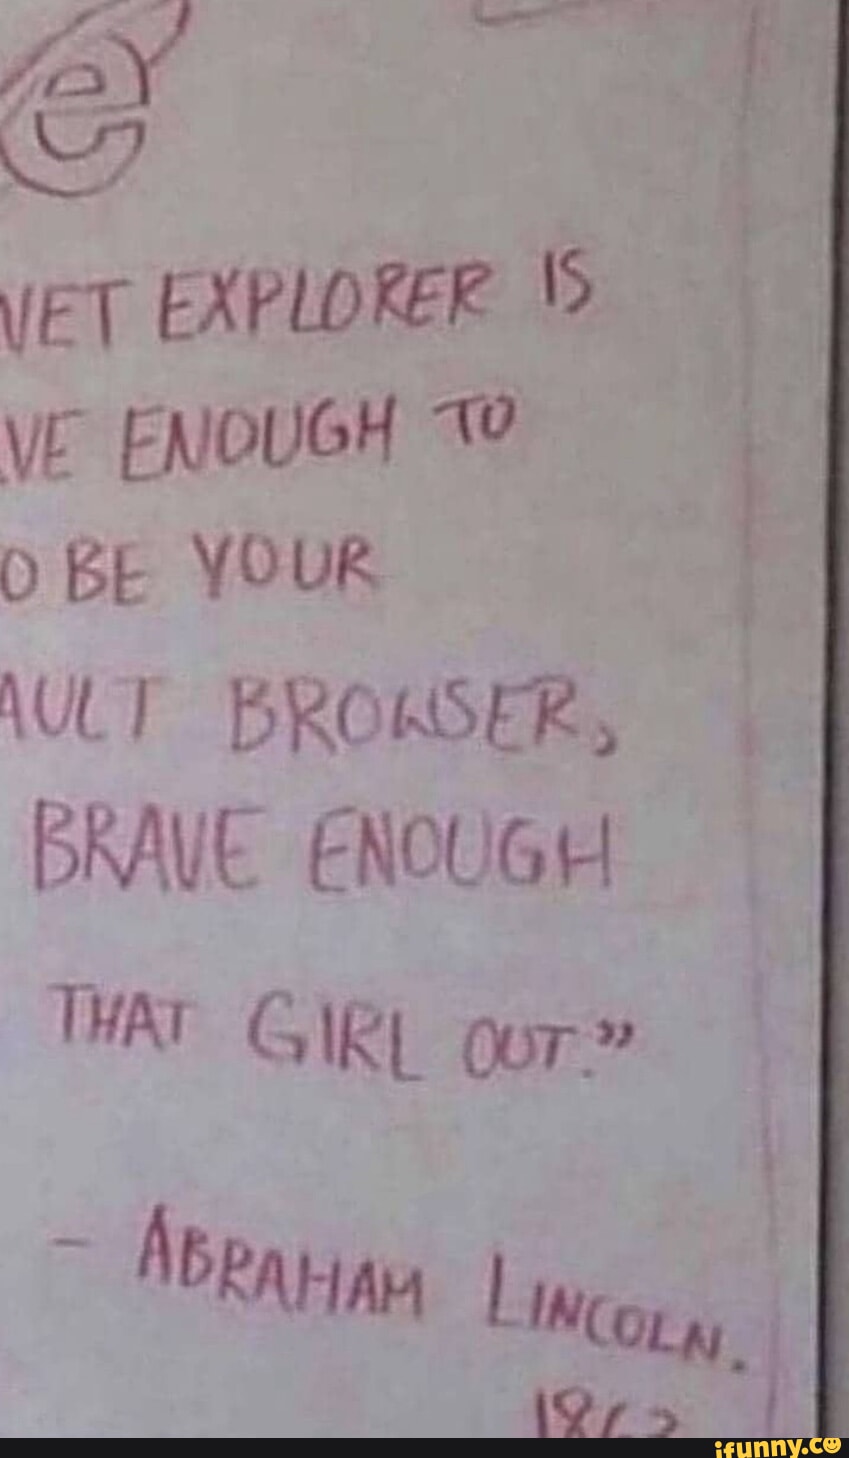 e
NET EXPLORER IS
VE ENOUGH TO
O BE YOUR
AULT BROWSER,
BRAVE ENOUGH
THAT GIRL OUT."
- ABRAHAM LINCOLN.
ifunny.co